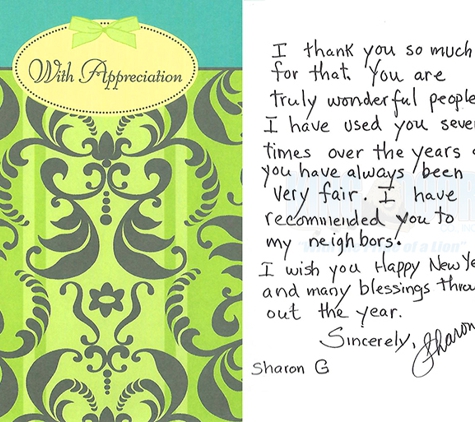 With Appreciation
I thank you so much
for that. You are
truly wonderful people
I have used you seve
times over the years
you have always been
very fair. I have
recommended you to
my neighbors.
I wish you Happy New Ye
and many blessings throu
out the year.
Sincerely, Sharon
Sharon G